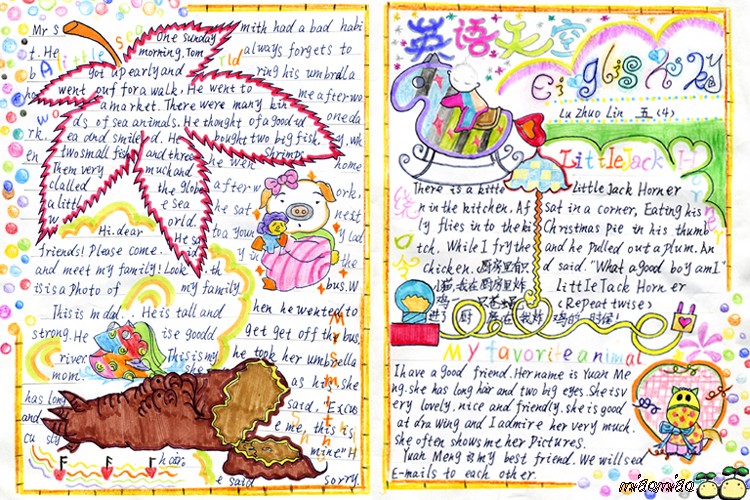 Mr S
mith had a bad habi
t. He
always forgets to
ring his umbrella
One sunday
morning, Tom
got up early and
went out for a walk. He went to
a market. There were many kin
ds of sea animals. He thought of a good id
ea and smiled. He bought two big fish.
two small fish and three Shrimps.
them very much and
clalled the globe
a little e sea
w orld.
Hi. dear
friends! Please come.
and meet my family! Look. th
is is a photo of my family
This is m dad... He is tall and
strong. He is e goodd
river This is my
mom. she
has long
and
hair.
he went
after w
he sat
to a your
in
ork,
next
g lad
bus. W
hen he wanted to
get get off the bus,
he took her umbrella
as his, she
said, "Excus
e me, this is
mine" H
e said sorry.
英语天空
English 报
Lu Zhuo Lin 五 (4)
There is a kitte
n in the kitchen. A f
ly flies in to the ki
tch. While I fry the
chicken.
Little Jack H
Little Jack Horner
sat in a corner, Eating his
Christmas Pie in his thumb
and he pulled out a plum. An
d said. "What a good boy am I"
little Jack Horner
(Repeat twise)
My favorite animal
I have a good friend. Her name is Yuan Me
ng. she has long hair and two big eyes. She is v
ery lovely. nice and friendly. she is good
at drawing and I admire her very much.
She often shows me her Pictures.
Yuan Meng is my best friend. We will sed
E-mails to each other.
miaomiao